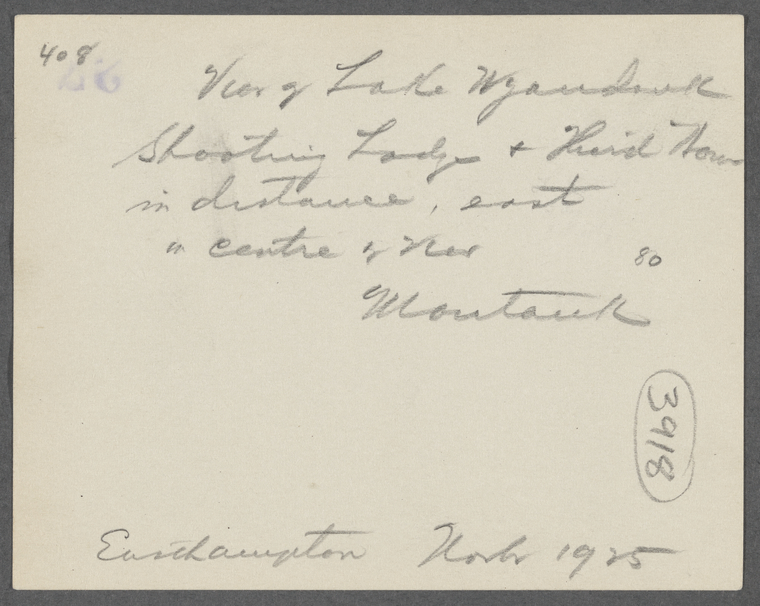 408
View of Lake Wyandank
Shooting Lodge + Third House
in distance, east
" centre of View
80
Montauk
3918
Easthampton Novbr 1925